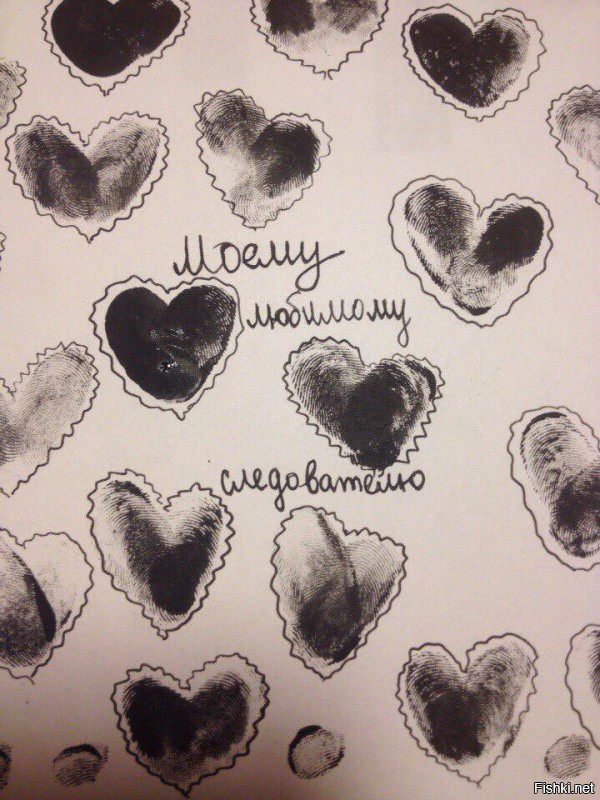 Моему
любимому
следователю
Fishki.net